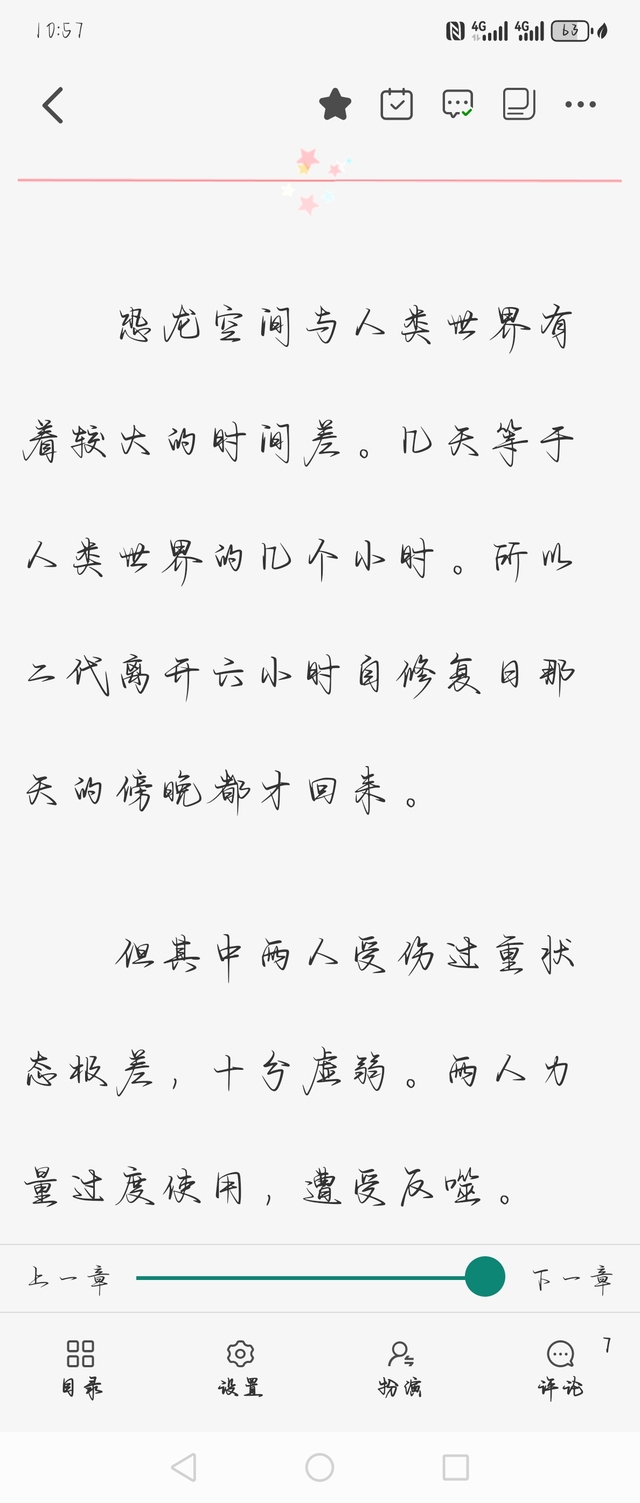 10:57
4G 4G 63
恐龙空间与人类世界有
着较大的时间差。几天等于
人类世界的几个小时。所以
二代离开六小时自修复日那
天的傍晚都才回来。
但其中两人受伤过重状
态极差，十分虚弱。两人力
量过度使用，遭受反噬。
上一章 下一章
7
目录 设置 扮演 评论